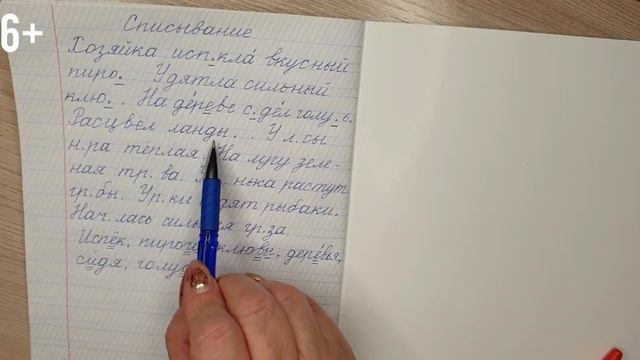 6+
Списывание
Хозяйка исп.кла́ вкусный
пиро. . У дятла сильный
клю. . На де́реве с.де́л голу. б.
Расцвёл ланды. . У л.сы
н.ра тёплая. На лугу зеле-
ная тр.ва. растут
гр.бы. Ур.ки рыбаки.
Нач.лась гр.за.
Испёк, клювы, дере́вья,
си́дя,